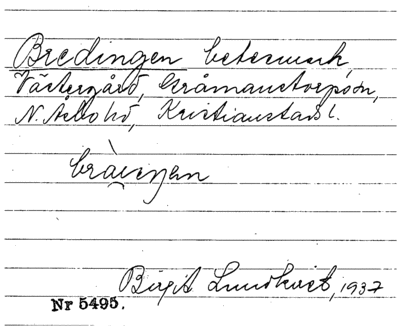 Bredingen betesmark,
Västergård, Gråmanstorps sn,
N. Åsbo hd, Kristianstads l.
Birgit Lundkvist, 1937
Nr 5495.